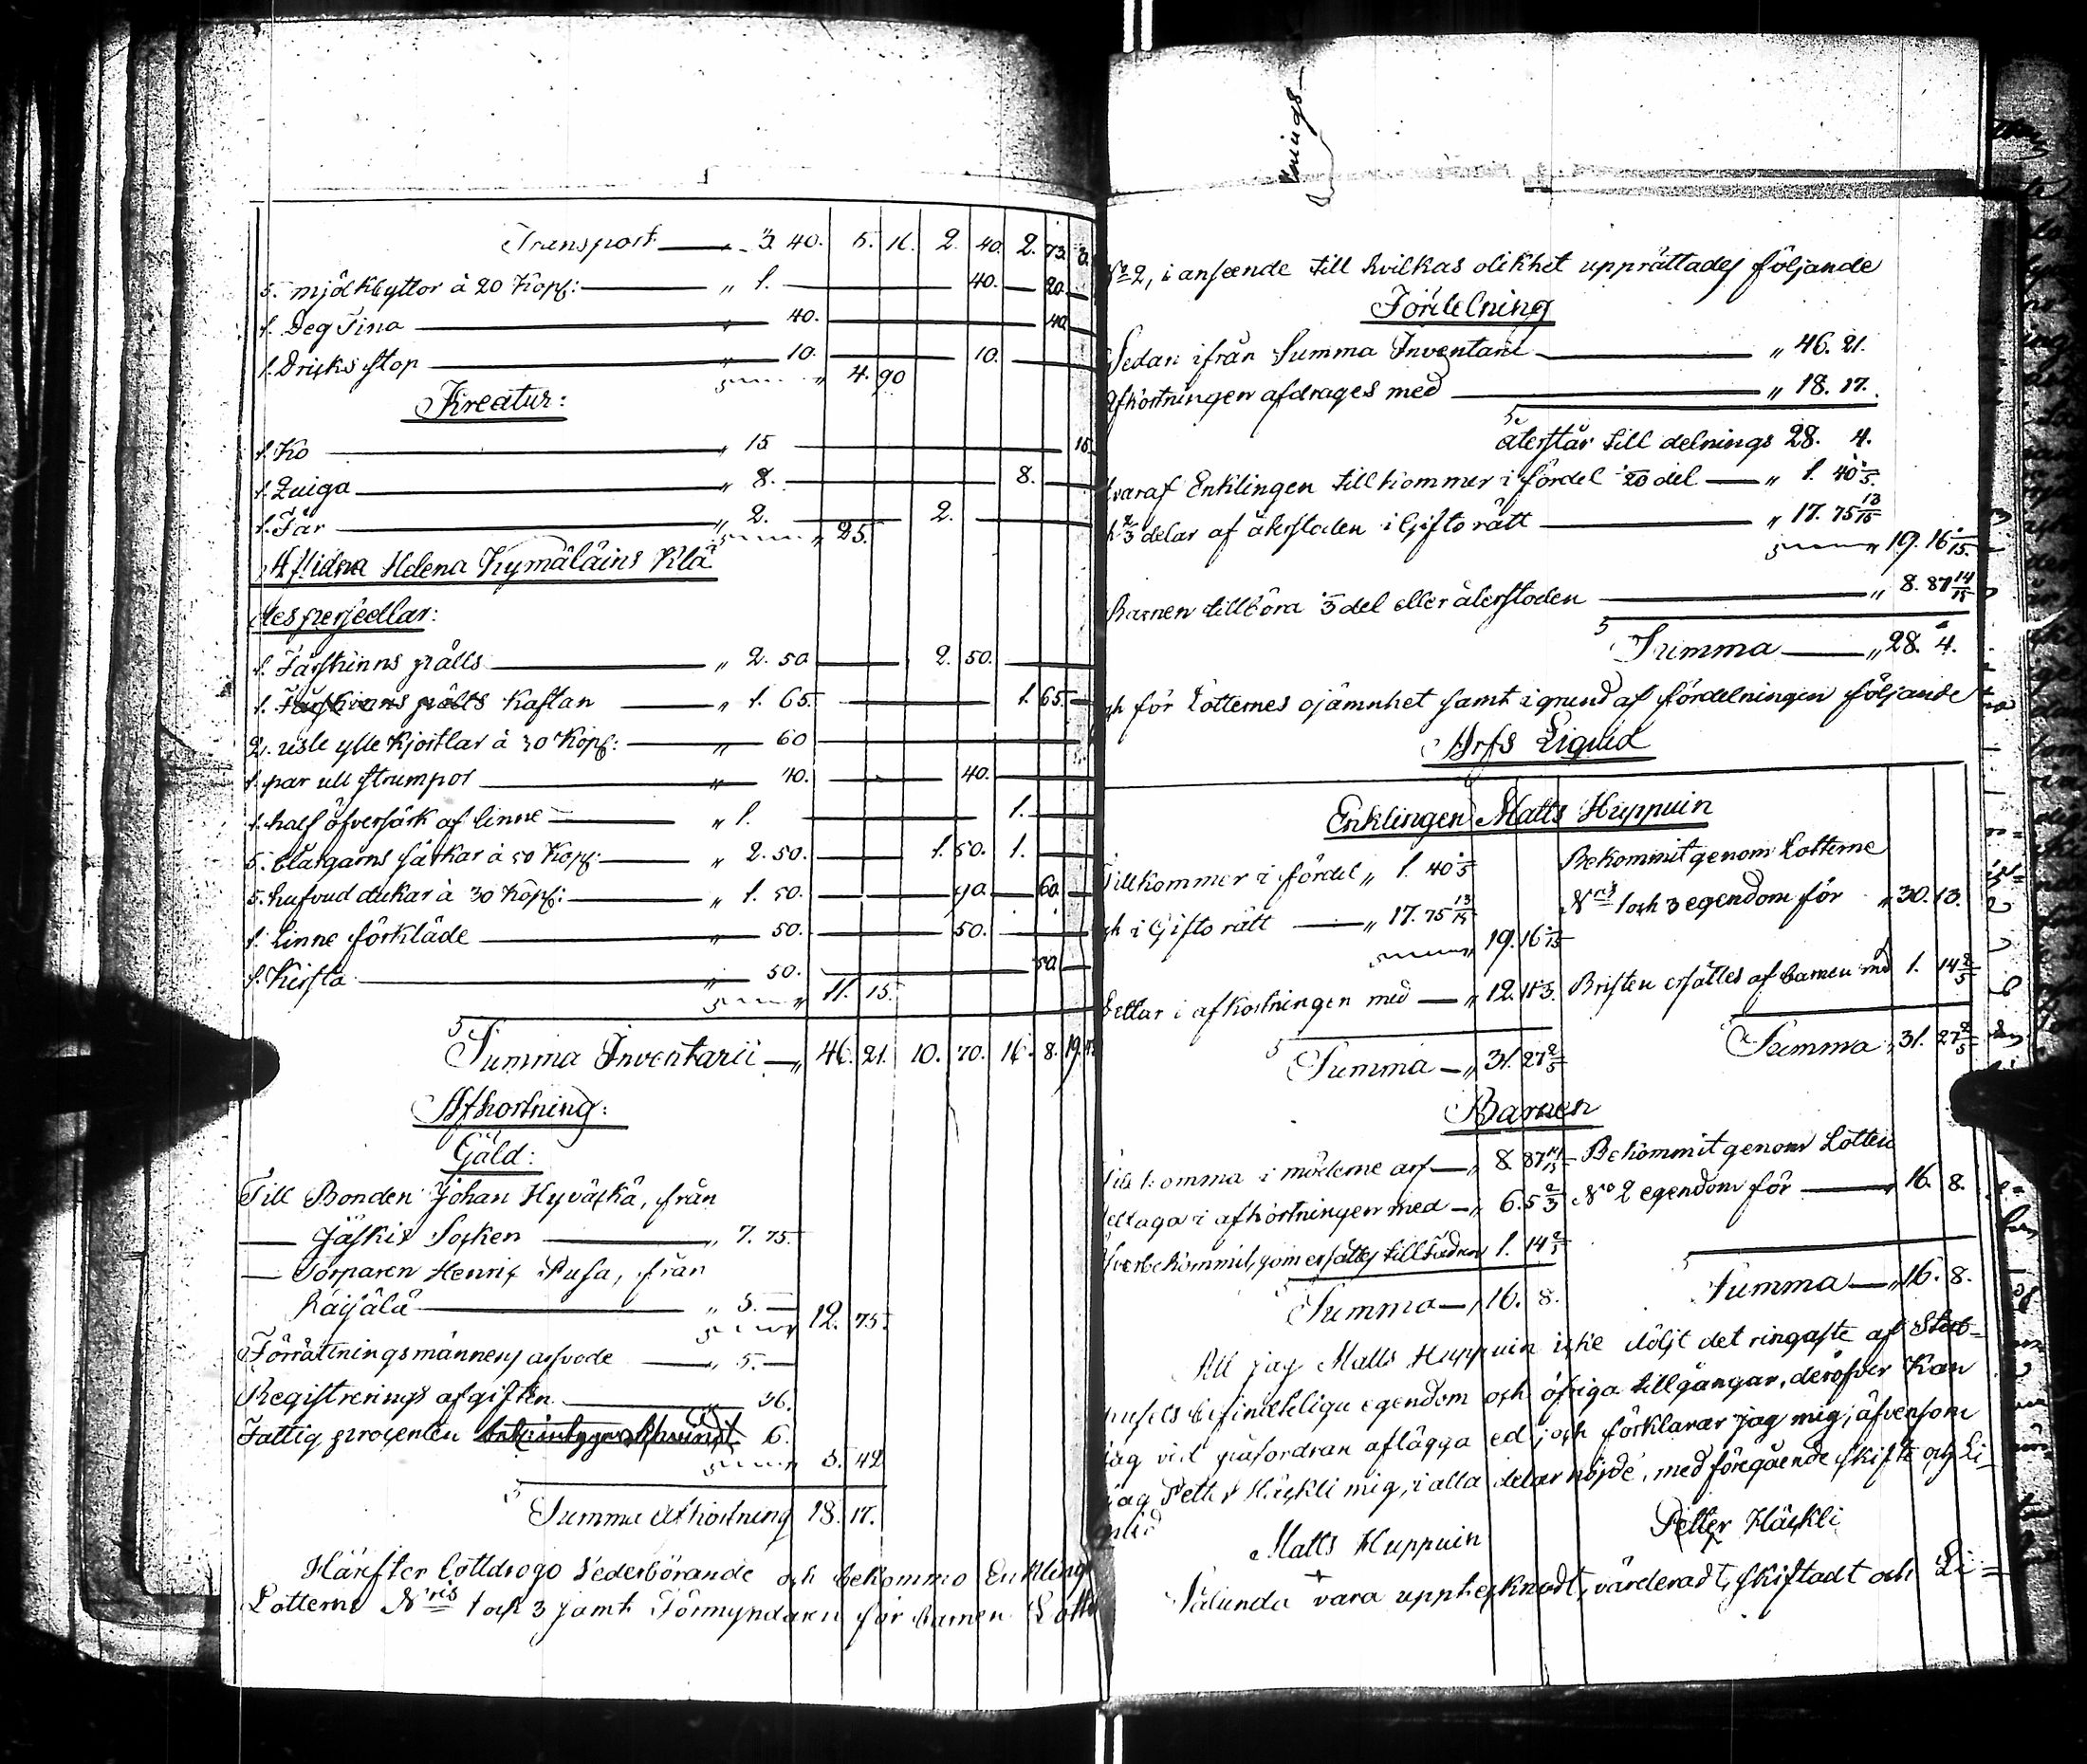 Transport — „ 3. 40. 5. 16. 2. 40. 2. 73.
5. mjölkbyttor à 20 Kop: — „ 1. — 40. — 20.
1. Deg Tina — „ 40. — 40.
1. Dricks stop — „ 10. — 10.
Summa „ 4. 90
Kreatur:
1. Ko — „ 15 — 15
1. Quiga — „ 8. — 8.
1. Får — „ 2. — 2.
Summa „ 25.
Aflidna Helena Kymäläins Klä
despersedlar:
1. Fårskinns pälts — „ 2. 50 — 2. 50.
1. Fårskinns pälts Kaftan — „ 1. 65. — 1. 65.
2. usle ylle kjortlar à 30 Kop: — „ 60
1. par ull strumpor — „ 40. — 40.
1. half öfversärk af linne — „ 1. — 1.
5. blårgarns särkar à 50 Kop: — „ 2. 50. — 1. 50. 1.
5. hufvud dukar à 30 Kop: — „ 1. 50. — 90. — 60.
1. linne förkläde — „ 50. — 50.
1. Kista — „ 50. — 50
Summa „ 11. 15.
Summa Inventarii — „ 46. 21. 10. 70. 16. 8. 19.
Afkortning:
Gäld:
Till Bonden Johan Hyväskä, från
— Jäskis Socken — „ 7. 75.
— Torparen Henric Pusa, från
Räisälä — „ 5. —
Summa 12. 75.
Förrättningsmännens arfvode — „ 5. —
Registrerings afgiften — 36.
Fattig procenten 6.
Summa 5. 42
Summa Afkortning 18. 17.
Härefter lottdrogo Vederbörande och bekommo Enkling
Lotterne N:ris 1 och 3 samt Förmyndaren för barnen Lott
N:o 2, i anseende till hvilkas olikhet upprättades följande
Fördelning
Sedan ifrån Summa Inventarii — „ 46. 21.
Afkortningen afdrages med — „ 18. 17.
återstår till delnings 28. 4.
hvaraf Enklingen tillkommer i fördel 1/20 del — „ 1. 40 1/5.
2/3 delar af återstoden i Giftorätt — „ 17. 75 13/15
Summa „ 19. 16 1/15.
Barnen tillhöra 1/3 del eller återstoden — „ 8. 87 14/15
Summa — „ 28. 4.
och för Lotternes ojämnhet samt i grund af fördelningen följande
Arfs Liquid
Enklingen Matts Huppuin
Tillkommer i fördel „ 1. 40 1/5 Bekommit genom Lotterne
och i Giftorätt — „ 17. 75 13/15 N:ris 1 och 3 egendom för „ 30. 13.
Summa „ 19. 16 1/15
Deltar i afkortningen med — „ 12. 11 1/3. Bristen ersättes af barnen med 1. 14 2/5
Summa — „ 31. 27 2/5 Summa „ 31. 27 2/5
Barnen
Tillkomma i möderne arf — „ 8. 87 14/15 Bekommit genom Lotten
deltaga i afkortningen med — „ 6. 5 2/3 N:o 2 egendom för — „ 16. 8.
Öfverbekommit, som ersättes till Fadren 1. 14 2/5
Summa — „ 16. 8. Summa — „ 16. 8.
Att jag Matts Huppuin icke döljt det ringaste af Sterb-
husets befinteliga egendom och öfriga tillgångar, deröfver kan
jag vid påfordran aflägga ed, och förklarar jag mig, äfvensom
jag Petter Häckli mig, i alla delar nöjde, med föregående skifte och Li-
quid
Matts Huppuin Petter Häckli
Sålunda vara uppteknadt, värderadt, skiftadt och Li-